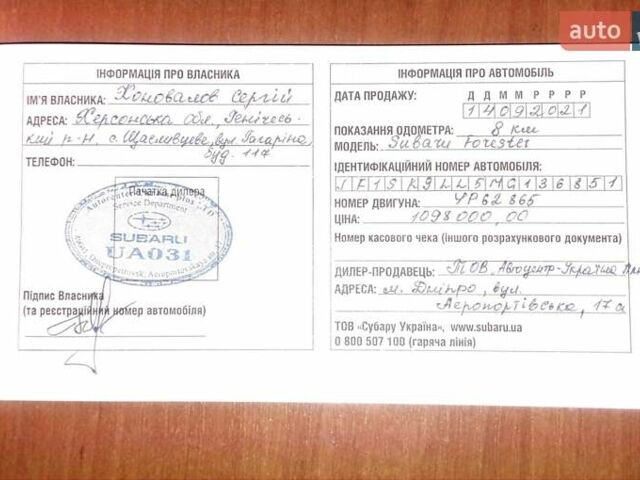 auto
ІНФОРМАЦІЯ ПРО ВЛАСНИКА
ІМ'Я ВЛАСНИКА: Коновалов Сергій
АДРЕСА: Херсонська обл., Генічесь-
кий р-н. с. Щасливцеве, вул. Гагаріна,
буд. 117
ТЕЛЕФОН:
Печатка дилера
Service Department
SUBARU
UA031
Підпис Власника
(та реєстраційний номер автомобіля)
ІНФОРМАЦІЯ ПРО АВТОМОБІЛЬ
Д Д М М Р Р Р Р
ДАТА ПРОДАЖУ: 14092021
ПОКАЗАННЯ ОДОМЕТРА: 8 км
МОДЕЛЬ: Subaru Forester
ІДЕНТИФІКАЦІЙНИЙ НОМЕР АВТОМОБІЛЯ:
JF1SK9LL5MG136851
НОМЕР ДВИГУНА: YP62865
ЦІНА: 1098000,00
Номер касового чека (іншого розрахункового документа)
ДИЛЕР-ПРОДАВЕЦЬ: ТОВ "Автоцентр-Україна
АДРЕСА: м. Дніпро, вул.
Аеропортівська, 17а
ТОВ «Субару Україна», www.subaru.ua
0 800 507 100 (гаряча лінія)